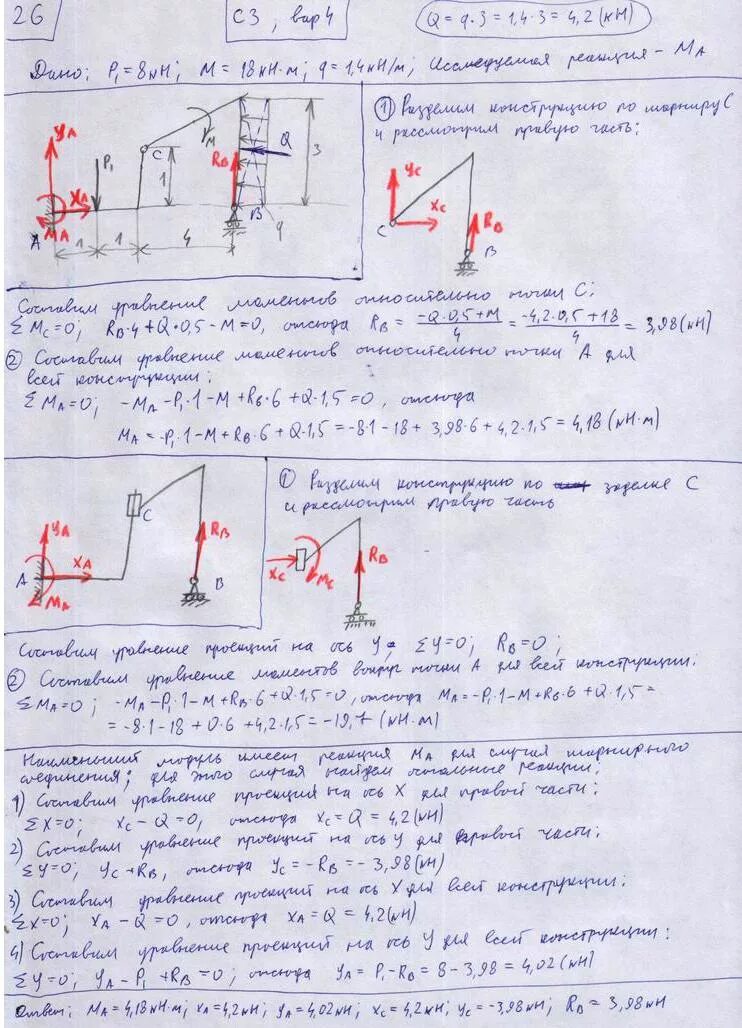 26
С3, вар 4
Q = q·3 = 1,4·3 = 4,2 (кН)
Дано: P₁ = 8 кН; M = 18 кН·м; q = 1,4 кН/м; Исследуемая реакция – M_A
Y_A
P₁
X_A
A
M_A
C
M
R_B
B
Q
q
1
3
1
1
4
① Разделим конструкцию по шарниру C
и рассмотрим правую часть:
Y_C
X_C
C
R_B
B
Составим уравнение моментов относительно точки C:
ΣM_C=0; R_B·4+Q·0,5-M=0, отсюда R_B = (-Q·0,5+M)/4 = (-4,2·0,5+18)/4 = 3,98 (кН)
② Составим уравнение моментов относительно точки A для
всей конструкции:
ΣM_A=0; -M_A-P₁·1-M+R_B·6+Q·1,5=0, отсюда
M_A=-P₁·1-M+R_B·6+Q·1,5=-8·1-18+3,98·6+4,2·1,5=4,18 (кН·м)
Y_A
X_A
A
M_A
C
R_B
B
① Разделим конструкцию по заделке C
и рассмотрим правую часть
X_C
M_C
R_B
Составим уравнение проекций на ось Y: ΣY=0; R_B=0;
② Составим уравнение моментов вокруг точки A для всей конструкции:
ΣM_A=0; -M_A-P₁·1-M+R_B·6+Q·1,5=0, отсюда M_A=-P₁·1-M+R_B·6+Q·1,5=
=-8·1-18+0·6+4,2·1,5=-19,7 (кН·м)
Наименьший модуль имеет реакция M_A для случая шарнирного
соединения; для этого случая найдем остальные реакции:
1) Составим уравнение проекция на ось X для правой части:
ΣX=0; X_C-Q=0, отсюда X_C=Q=4,2 (кН)
2) Составим уравнение проекций на ось Y для правой части:
ΣY=0; Y_C+R_B, отсюда Y_C=-R_B=-3,98 (кН)
3) Составим уравнение проекций на ось X для всей конструкции:
ΣX=0; X_A-Q=0, отсюда X_A=Q=4,2 (кН)
4) Составим уравнение проекций на ось Y для всей конструкции:
ΣY=0; Y_A-P₁+R_B=0; отсюда Y_A=P₁-R_B=8-3,98=4,02 (кН)
Ответ: M_A=4,18 кН·м; X_A=4,2 кН; Y_A=4,02 кН; X_C=4,2 кН; Y_C=-3,98 кН; R_B=3,98 кН